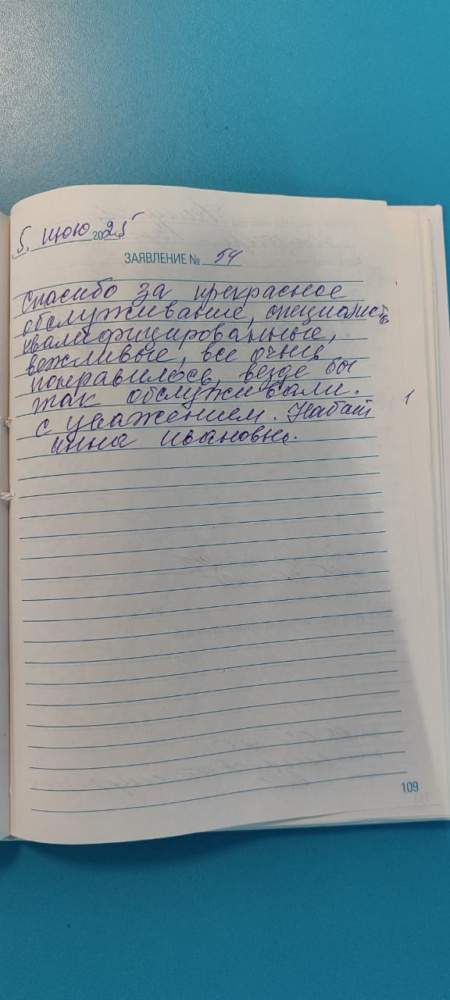 5. июю 2025
ЗАЯВЛЕНИЕ № 54
Спасибо за прекрасное
обслуживание, специалисты
квалифицированные,
вежливые, все очень
понравилось, везде бы
так обслуживали.
с уважением. Набат
инна ивановна.
109